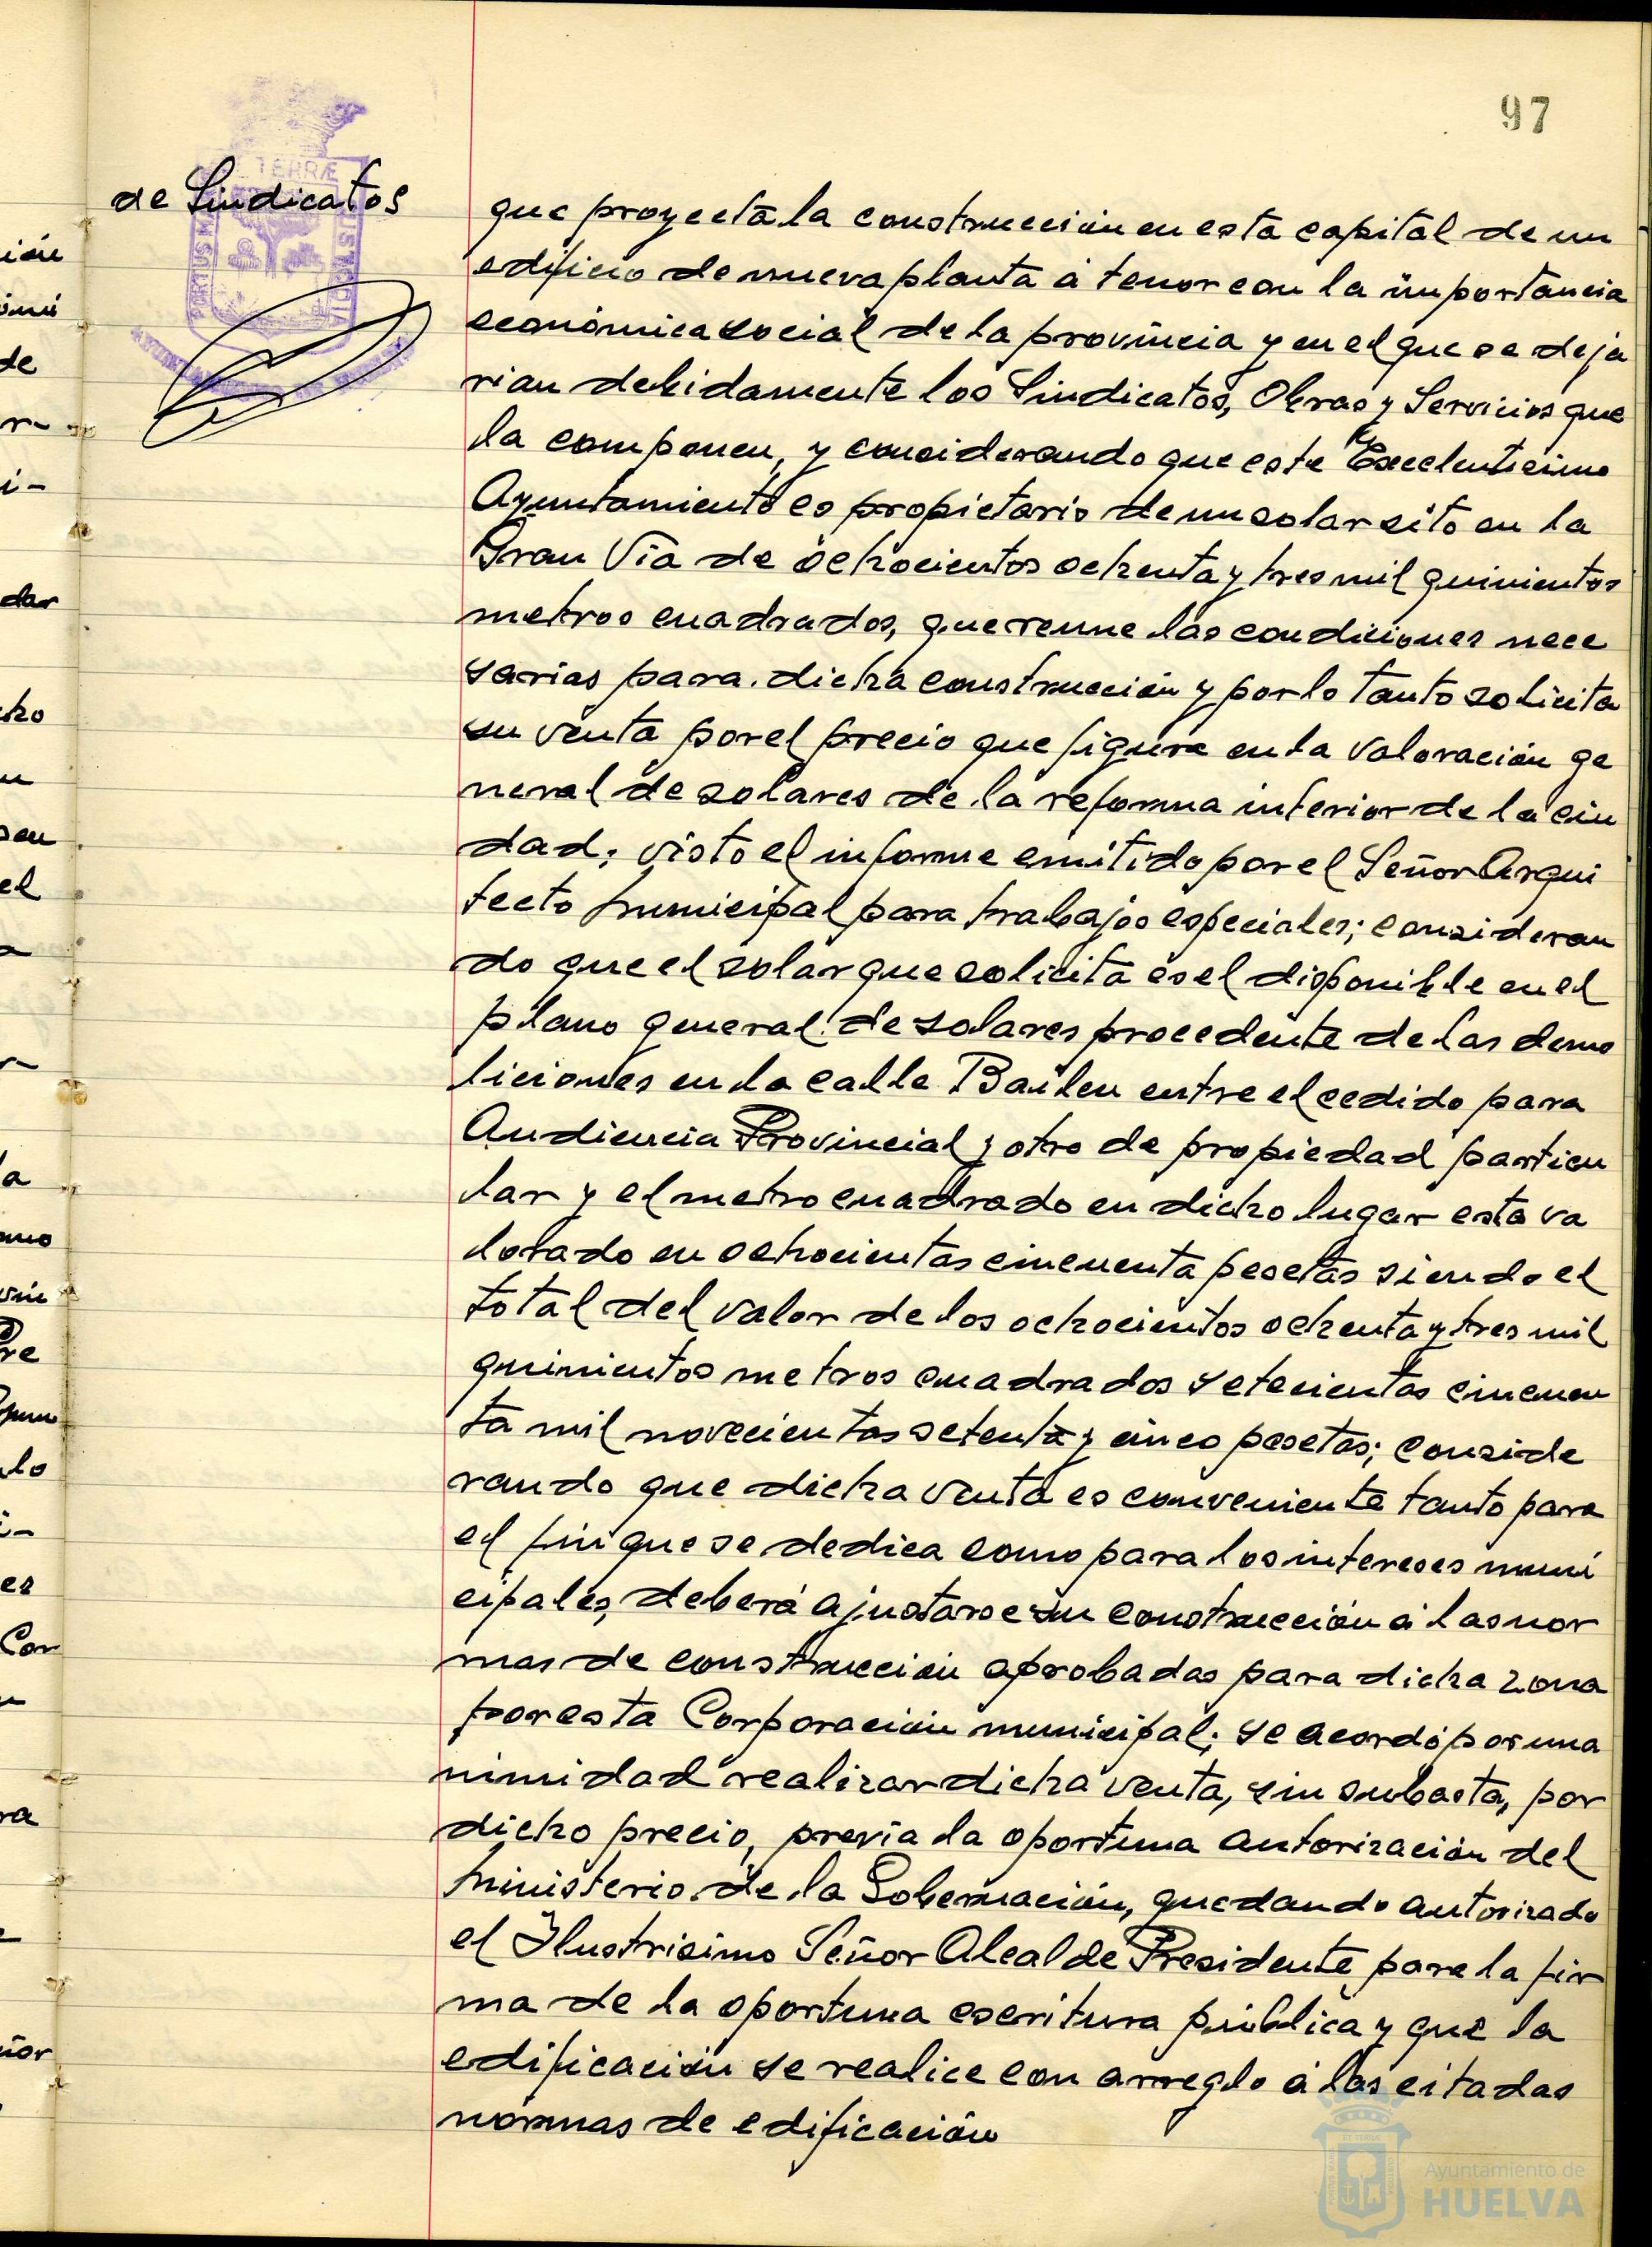 97
de Sindicatos
que proyecta la construcción en esta capital de un
edificio de nueva planta á tenor con la importancia
económica social de la provincia y en el que se deja
rian debidamente los Sindicatos, Obras y Servicios que
la componen, y considerando que este Excelentisimo
Ayuntamiento es propietario de un solar sito en la
Gran Vía de ochocientos ochenta y tres mil quinientos
metros cuadrados, que reune las condiciones nece
sarias para dicha construcción y por lo tanto solicita
su venta por el precio que figura en la valoración ge
neral de solares de la reforma interior de la ciu
dad; visto el informe emitido por el Señor Arqui
tecto municipal para trabajos especiales; consideran
do que el solar que solicita es el disponible en el
plano general de solares procedente de las demo
liciones en la calle Bailen entre el cedido para
Audiencia Provincial y otro de propiedad particu
lar y el metro cuadrado en dicho lugar está va
lorado en ochocientas cincuenta pesetas siendo el
total del valor de los ochocientos ochenta y tres mil
quinientos metros cuadrados setecientas cincuen
ta mil novecientas setenta y cinco pesetas; conside
rando que dicha venta es conveniente tanto para
el fin que se dedica como para los intereses muni
cipales, deberá ajustarse su construcción á las nor
mas de construcción aprobadas para dicha zona
por esta Corporación municipal; se acordó por una
nimidad realizar dicha venta, sin subasta, por
dicho precio, previa la oportuna autorización del
Ministerio de la Gobernación, quedando autorizado
el Ilustrisimo Señor Alcalde Presidente para la fir
ma de la oportuna escritura pública y que la
edificación se realice con arreglo á las citadas
normas de edificación
Ayuntamiento de
HUELVA